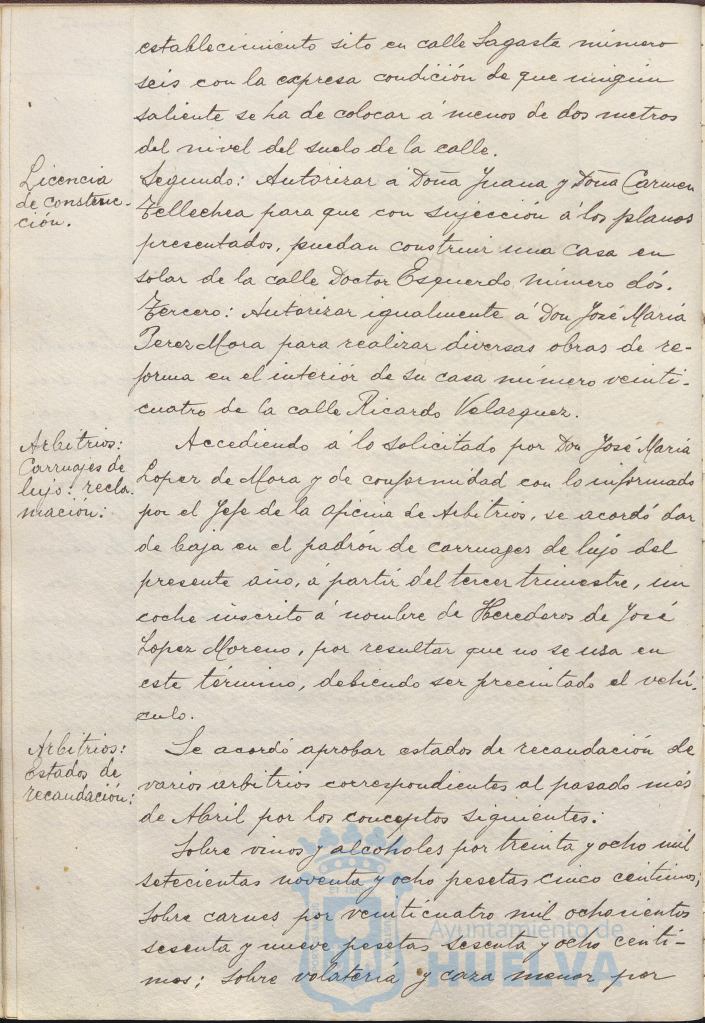 establecimiento sito en calle Sagasta número
seis con la expresa condición de que ningun
saliente se ha de colocar á menos de dos metros
del nivel del suelo de la calle.
Licencia
de construc-
ción.
Segundo: Autorizar á Doña Juana y Doña Carmen
Tellechea para que con sujección á los planos
presentados, puedan construir una casa en
solar de la calle Doctor Esquerdo número dós.
Tercero: Autorizar igualmente á Don José María
Perez Mora para realizar diversas obras de re-
forma en el interior de su casa número veinti-
cuatro de la calle Ricardo Velazquez.
Arbitrios:
Carruajes de
lujo: recla-
mación:
Accediendo á lo solicitado por Don José Maria
Lopez de Mora y de conformidad con lo informado
por el Jefe de la oficina de Arbitrios, se acordó dar
de baja en el padrón de carruages de lujo del
presente año, á partir del tercer trimestre, un
coche inscrito á nombre de Herederos de José
Lopez Moreno, por resultar que no se usa en
este término, debiendo ser precintado el vehi-
culo.
Arbitrios:
Estados de
recaudación:
Se acordó aprobar estados de recaudación de
varios arbitrios correspondientes al pasado més
de Abril por los conceptos siguientes:
Sobre vinos y alcoholes por treinta y ocho mil
setecientas noventa y ocho pesetas cinco centimos;
sobre carnes por veinticuatro mil ochocientos
sesenta y nueve pesetas sesenta y ocho centi-
mos; sobre volatería y caza menor por
Ayuntamiento de
HUELVA